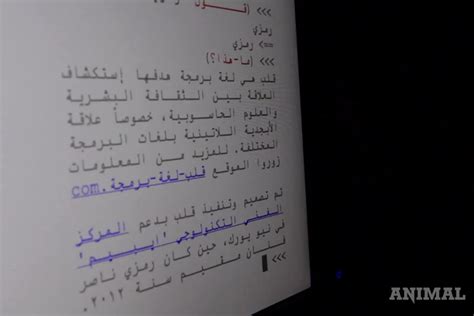 >>> (قول
رمزي
<== رمزي
>>> (ما-هذا؟)
قلب هي لغة برمجة هدفها إستكشاف
العلاقة بين الثقافة البشرية
والعلوم الحاسوبية، خصوصاً علاقة
الأبجدية اللاتينية بلغات البرمجة
المختلفة. للمزيد من المعلومات
زوروا الموقع قلب-لغة-برمجة.com
تم تصميم وتنفيذ قلب بدعم المركز
الفني التكنولوجي 'ايبيم'
في نيو يورك، حين كان رمزي ناصر
فنان مقيم سنة ٢٠١٢.
>>>
ANIMAL